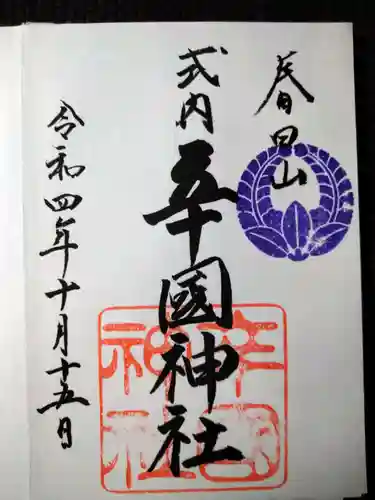 春日山
式内
辛國神社
令和四年十月十五日
辛國
神社